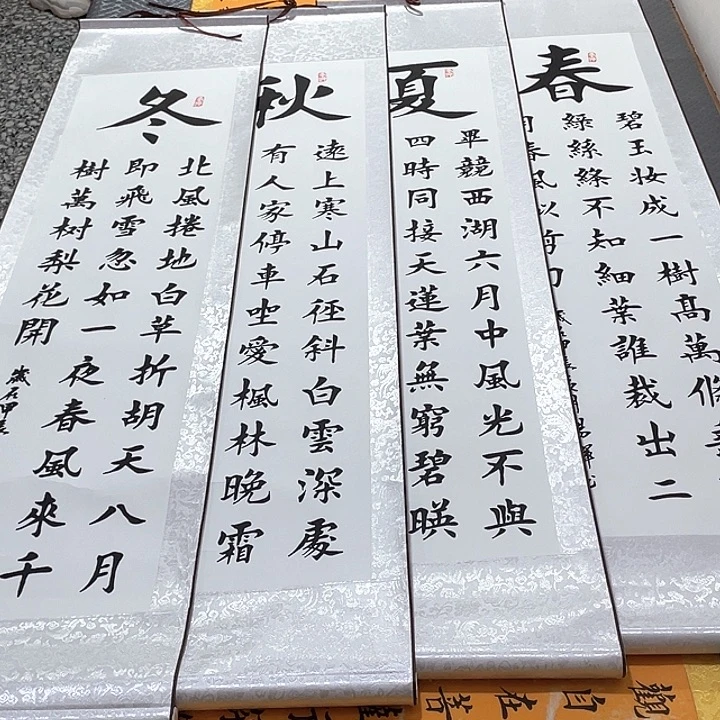 春
碧玉妆成一樹高萬條垂
綠絲絛不知細葉誰裁出二
月春風似剪刀
夏
畢競西湖六月中風光不與
四時同接天蓮葉無窮碧暎
秋
遠上寒山石径斜白雲深處
有人家停車坐愛楓林晚霜
冬
北風捲地白草折胡天八月
即飛雪忽如一夜春風來千
樹萬树梨花開
歲在甲辰
觀自在菩